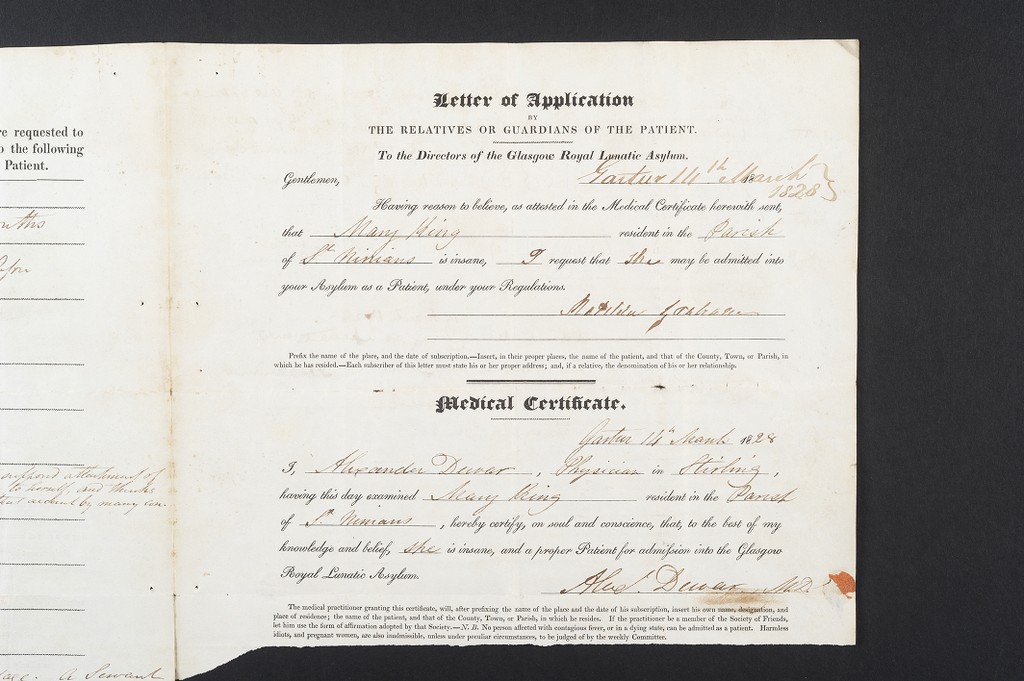 re requested to
o the following
Patient.
supposed attachment of
to herself, and thinks
by many con-
A Servant
Letter of Application
BY
THE RELATIVES OR GUARDIANS OF THE PATIENT.
To the Directors of the Glasgow Royal Lunatic Asylum.
Gartur 14th March 18
1828
Gentlemen,
Having reason to believe, as attested in the Medical Certificate herewith sent,
that Mary King resident in the Parish
of St Ninians is insane, I request that she may be admitted into
your Asylum as a Patient, under your Regulations.
Matilda Graham
Prefix the name of the place, and the date of subscription.—Insert, in their proper places, the name of the patient, and that of the County, Town, or Parish, in
which he has resided.—Each subscriber of this letter must state his or her proper address; and, if a relative, the denomination of his or her relationship.
Medical Certificate.
Gartur 14th March 1828
I, Alexander Dewar, Physician in Stirling,
having this day examined Mary King resident in the Parish
of St Ninians, hereby certify, on soul and conscience, that, to the best of my
knowledge and belief, she is insane, and a proper Patient for admission into the Glasgow
Royal Lunatic Asylum.
Alexr. Dewar M.D.
The medical practitioner granting this certificate, will, after prefixing the name of the place and the date of his subscription, insert his own name, designation, and
place of residence; the name of the patient, and that of the County, Town, or Parish, in which he resides. If the practitioner be a member of the Society of Friends,
let him use the form of affirmation adopted by that Society.—N. B. No person affected with contagious fever, or in a dying state, can be admitted as a patient. Harmless
idiots, and pregnant women, are also inadmissible, unless under peculiar circumstances, to be judged of by the weekly Committee.